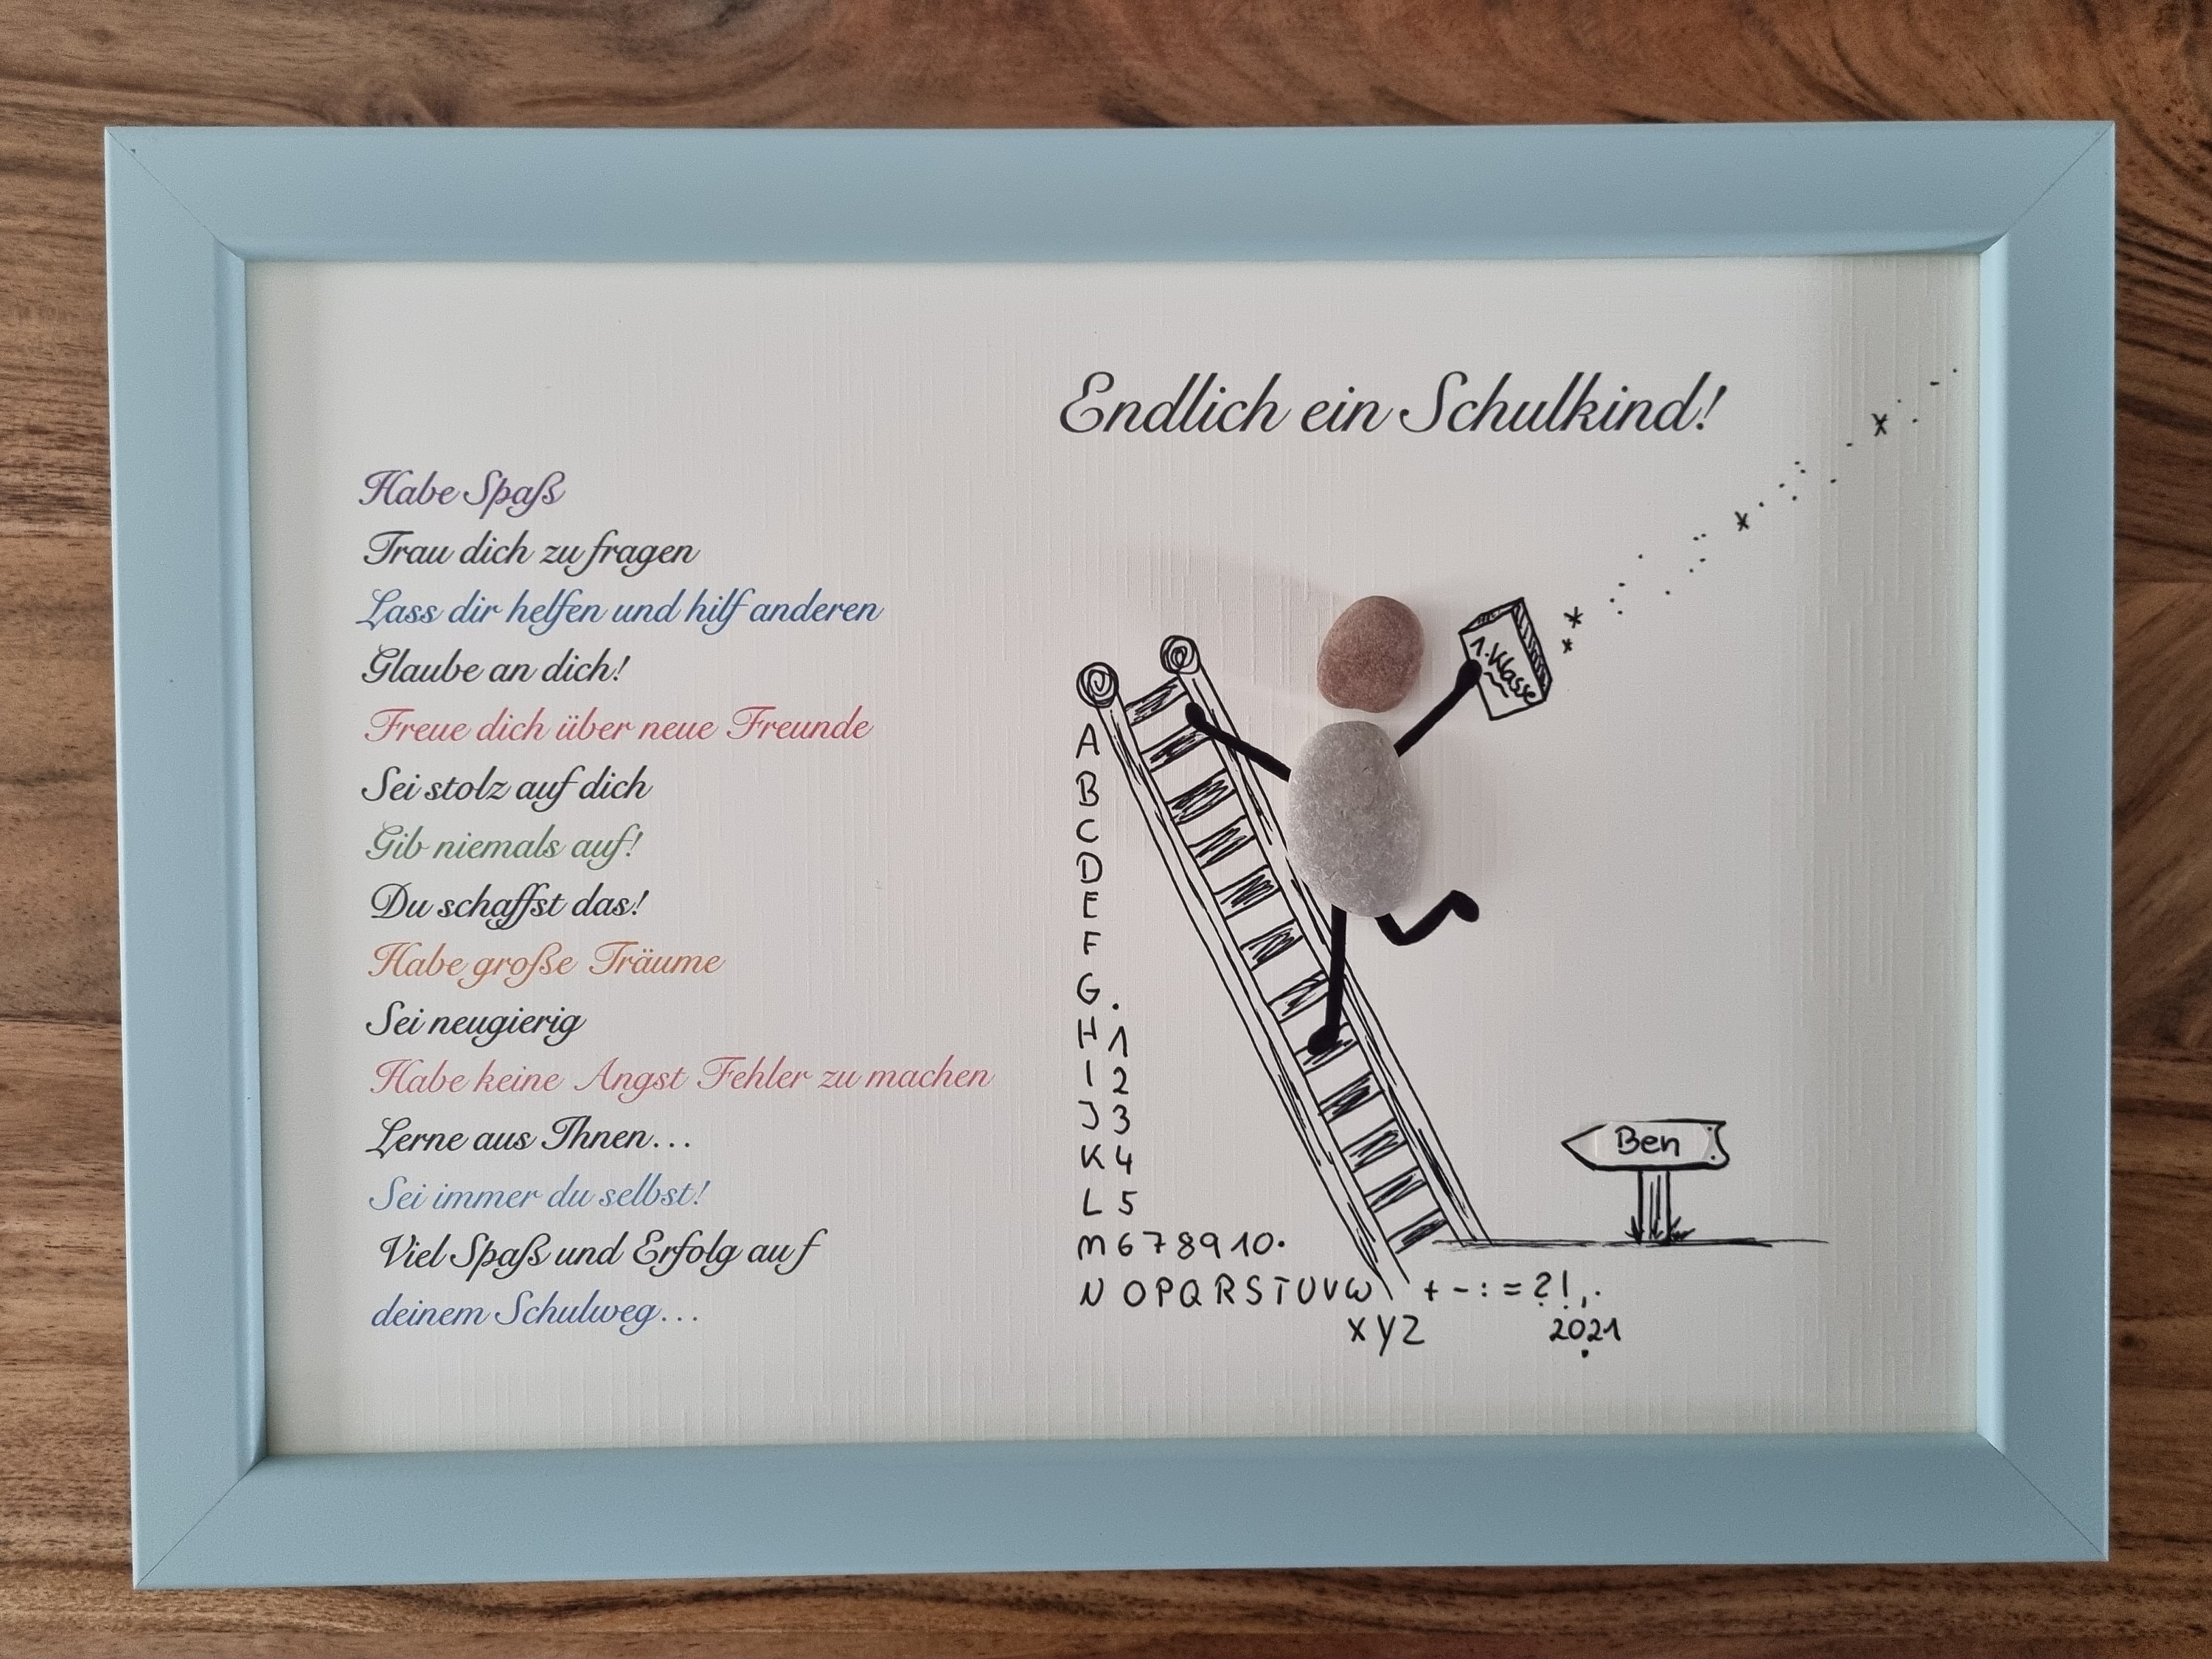 Endlich ein Schulkind!
Habe Spaß
Trau dich zu fragen
Lass dir helfen und hilf anderen
Glaube an dich!
Freue dich über neue Freunde
Sei stolz auf dich
Gib niemals auf!
Du schaffst das!
Habe große Träume
Sei neugierig
Habe keine Angst Fehler zu machen
Lerne aus Ihnen...
Sei immer du selbst!
Viel Spaß und Erfolg auf
deinem Schulweg...
1. Klasse
A
B
C
D
E
F
G .
H 1
I 2
J 3
K 4
L 5
M 6 7 8 9 10.
N O P Q R S T U V W
X Y Z
+ - : = ? ! , .
2021
Ben